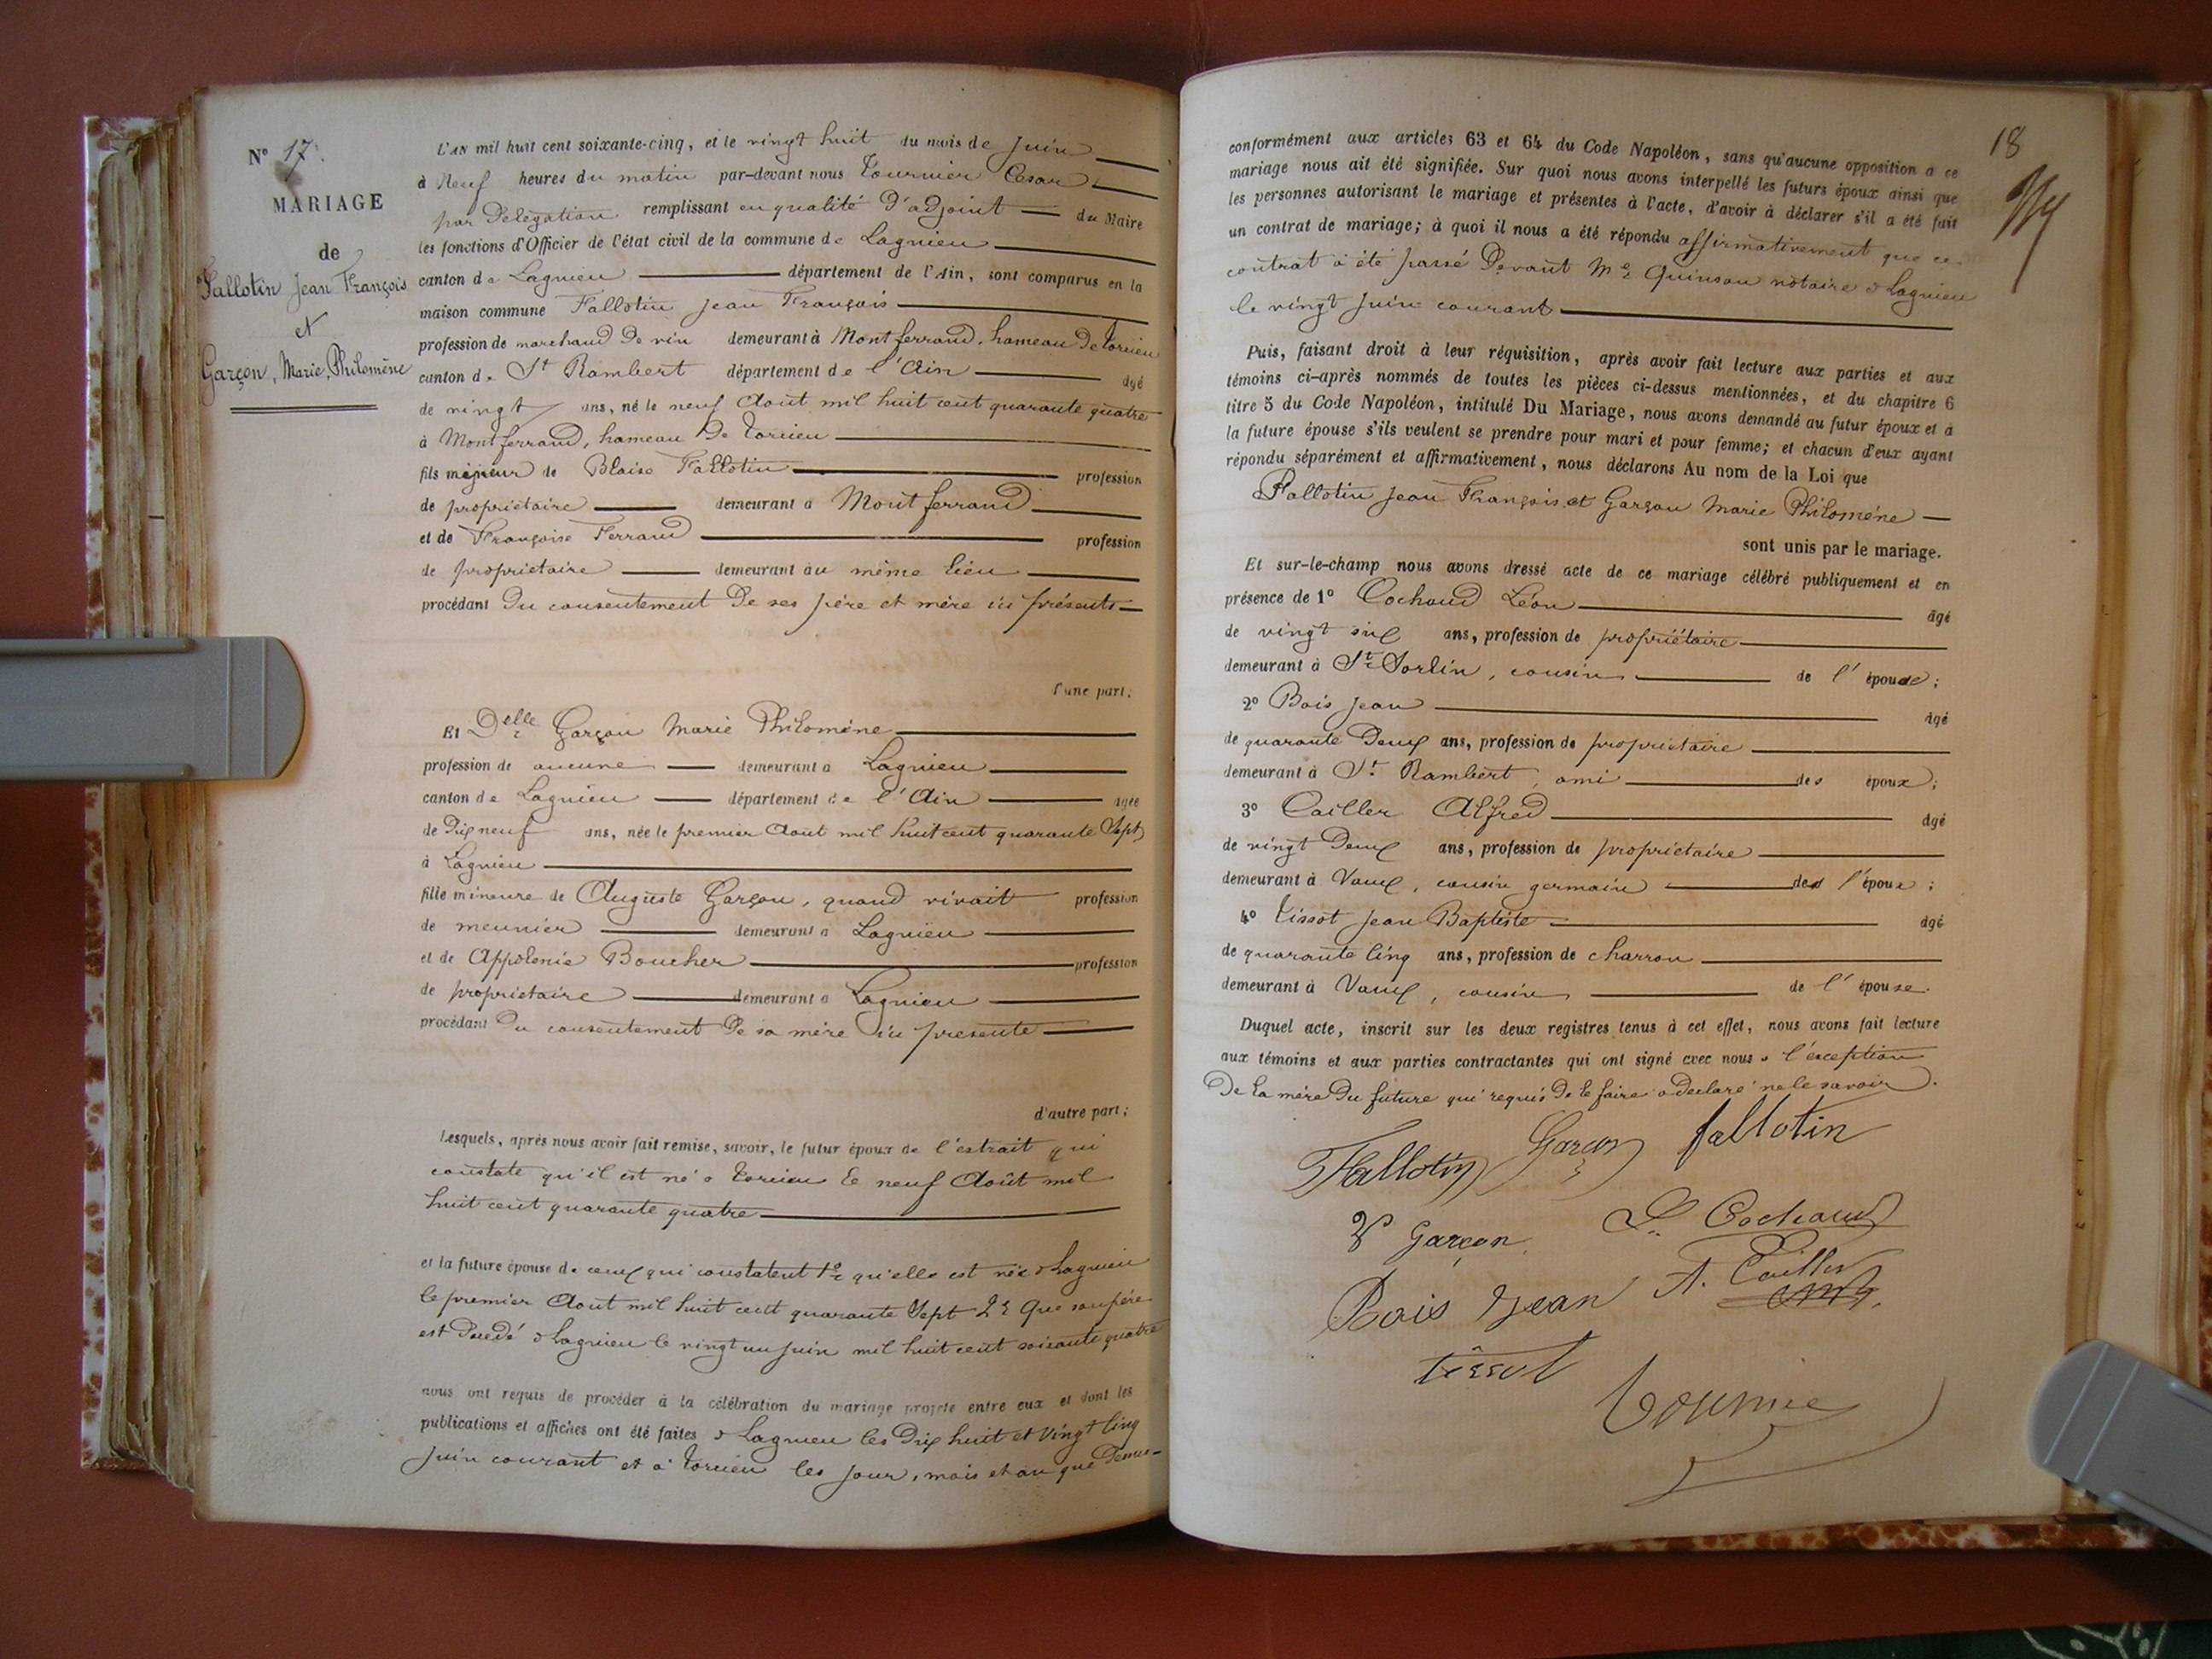 N° 17.
MARIAGE
de
Fallotin Jean François
et
Garçon, Marie, Philomène
L'AN mil huit cent soixante-cinq, et le vingt huit du mois de Juin
à Neuf heures du matin par-devant nous Tournier Cesar
par Delegation remplissant en qualité D'adjoint du Maire
les fonctions d'Officier de l'état civil de la commune de Lagnieu
canton de Lagnieu département de l'Ain, sont comparus en la
maison commune Fallotin Jean François
profession de marchand De vin demeurant à Montferrand, hameau De Torcieu
canton de St Rambert département de l'Ain âgé
de vingt ans, né le neuf Aout mil huit cent quarante quatre
à Montferrand, hameau De Torcieu
fils mineur de Blaise Fallotin profession
de propriétaire demeurant à Montferrand
et de Françoise Ferrand profession
de propriétaire demeurant au même lieu
procédant Du consentement De ses père et mère ici présents
d'une part;
Et Delle Garçon Marie Philomène
profession de aucune demeurant à Lagnieu
canton de Lagnieu département de l'Ain âgée
de Dix neuf ans, née le premier Aout mil huit cent quarante Sept
à Lagnieu
fille mineure de Auguste Garçon, quand vivait profession
de meunier demeurant à Lagnieu
et de Appolonie Boucher profession
de propriétaire demeurant à Lagnieu
procédant Du consentement De sa mère ici présente
d'autre part;
Lesquels, après nous avoir fait remise, savoir, le futur époux de l'extrait qui
constate qu'il est né à Torcieu le neuf Août mil
huit cent quarante quatre
et la future épouse de ceux qui constatent 1° qu'elle est née à Lagnieu
le premier Aout mil huit cent quarante Sept 2° Que son père
est Decedé à Lagnieu le vingt un Juin mil huit cent soixante quatre
nous ont requis de procéder à la célébration du mariage projeté entre eux et dont les
publications et affiches ont été faites à Lagnieu les Dix huit et Vingt Cinq
Juin courant et à Torcieu les jour, mois et an que Dessus
18
conformément aux articles 63 et 64 du Code Napoléon, sans qu'aucune opposition a ce
mariage nous ait été signifiée. Sur quoi nous avons interpellé les futurs époux ainsi que
les personnes autorisant le mariage et présentes à l'acte, d'avoir à déclarer s'il a été fait
un contrat de mariage; à quoi il nous a été répondu affirmativement que ce
contrat à été passé Devant Me Quinson notaire à Lagnieu
le vingt Juin courant
Puis, faisant droit à leur réquisition, après avoir fait lecture aux parties et aux
témoins ci-après nommés de toutes les pièces ci-dessus mentionnées, et du chapitre 6
titre 5 du Code Napoléon, intitulé Du Mariage, nous avons demandé au futur époux et à
la future épouse s'ils veulent se prendre pour mari et pour femme; et chacun d'eux ayant
répondu séparément et affirmativement, nous déclarons Au nom de la Loi que
Fallotin Jean François et Garçon Marie Philomène
sont unis par le mariage.
Et sur-le-champ nous avons dressé acte de ce mariage célébré publiquement et en
présence de 1° Cochaud Léon âgé
de vingt six ans, profession de propriétaire
demeurant à St Sorlin, cousin de l'épouse;
2° Bois Jean âgé
de quarante Deux ans, profession de propriétaire
demeurant à St Rambert, ami des époux;
3° Cailler Alfred âgé
de vingt Deux ans, profession de propriétaire
demeurant à Vaux, cousin germain de l'épouse;
4° Tissot Jean Baptiste âgé
de quarante Cinq ans, profession de charron
demeurant à Vaux, cousin de l'épouse.
Duquel acte, inscrit sur les deux registres tenus à cet effet, nous avons fait lecture
aux témoins et aux parties contractantes qui ont signé avec nous à l'exception
De la mère Du future qui requis De le faire a Declaré ne le savoir.
Fallotin Garçon fallotin
Ve Garçon L. Cochaud
Bois Jean A. Cailler
tissot
Tournier